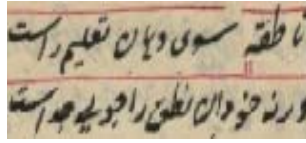 ناطقه سوی دهان تعلیم راست
ورنه خود آن نطق را جویی جداست